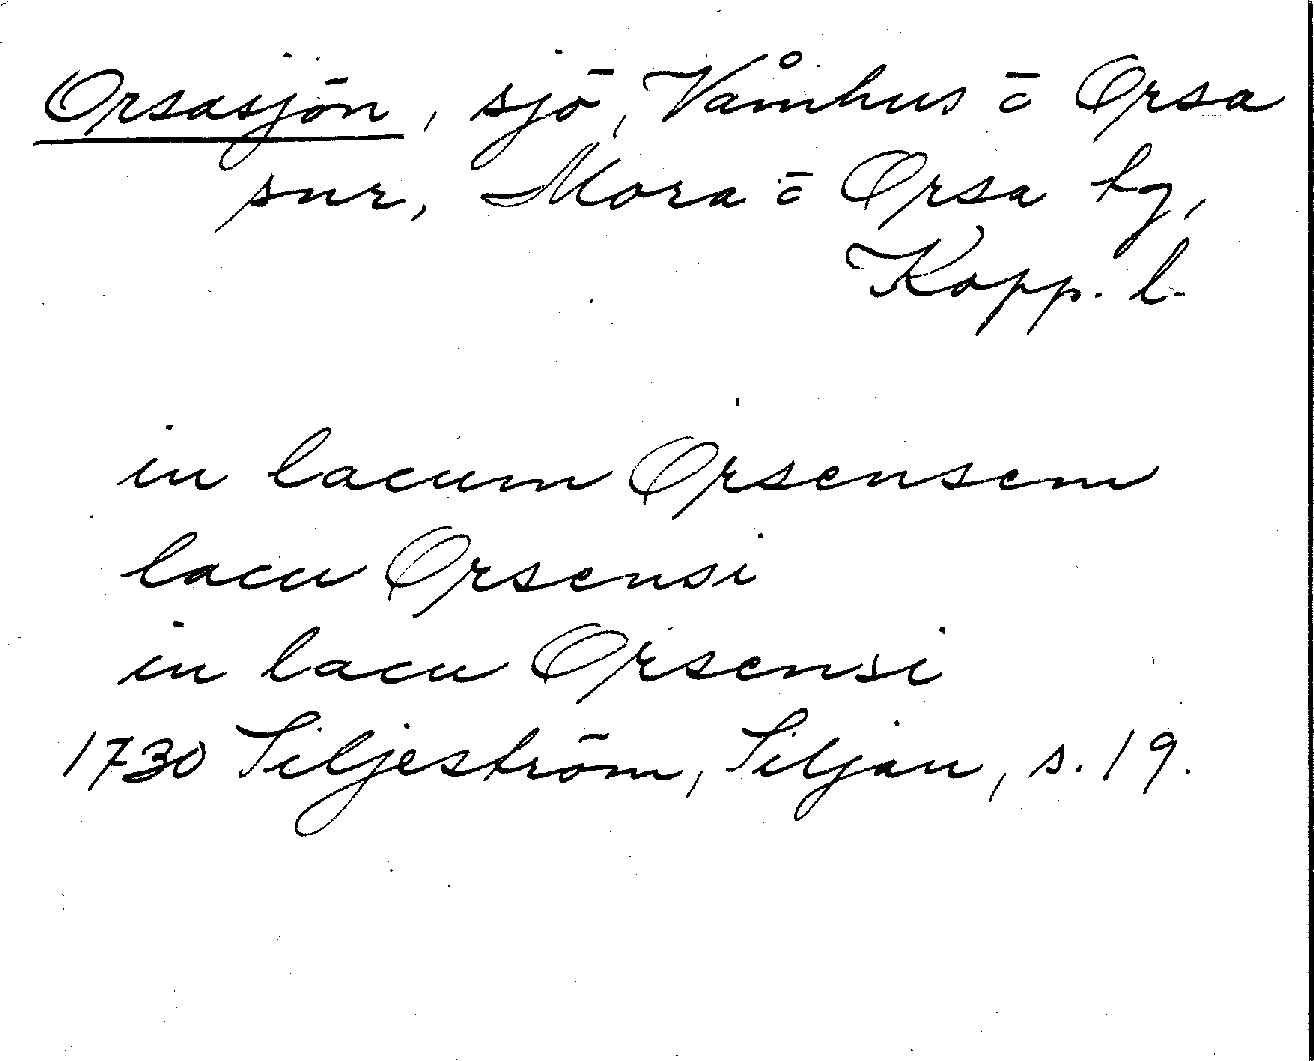 Orsasjön, sjö, Våmhus o Orsa
snr, Mora o Orsa tg,
Kopp. l.
in lacum Orsensem
lacu Orsensi
in lacu Orsensi
1730 Siljeström, Siljan, s. 19.